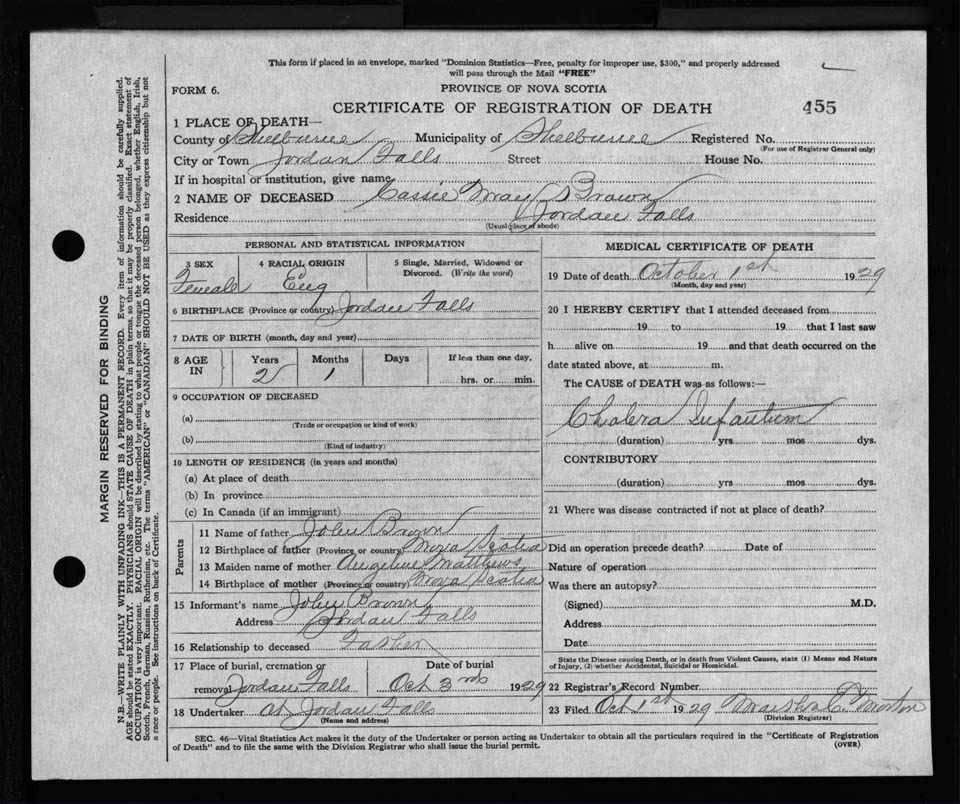 This form if placed in an envelope, marked "Dominion Statistics—Free, penalty for improper use, $300," and properly addressed
will pass through the Mail "FREE"
FORM 6.
PROVINCE OF NOVA SCOTIA
CERTIFICATE OF REGISTRATION OF DEATH
455
1 PLACE OF DEATH—
County of Shelburne Municipality of Shelburne Registered No.
(For use of Registrar General only)
City or Town Jordan Falls Street House No.
If in hospital or institution, give name
2 NAME OF DECEASED Cassie May Brown
Residence Jordan Falls
(Usual place of abode)
PERSONAL AND STATISTICAL INFORMATION
3 SEX 4 RACIAL ORIGIN 5 Single, Married, Widowed or
Divorced. (Write the word)
Female Eng
6 BIRTHPLACE (Province or country) Jordan Falls
7 DATE OF BIRTH (month, day and year)
8 AGE IN Years Months Days If less than one day,
2 1 hrs. or min.
9 OCCUPATION OF DECEASED
(a)
(Trade or occupation or kind of work)
(b)
(Kind of industry)
10 LENGTH OF RESIDENCE (in years and months)
(a) At place of death
(b) In province
(c) In Canada (if an immigrant)
Parents
11 Name of father John Brown
12 Birthplace of father (Province or country) Nova Scotia
13 Maiden name of mother Angeline Matthews
14 Birthplace of mother (Province or country) Nova Scotia
15 Informant's name John Brown
Address Jordan Falls
16 Relationship to deceased Father
17 Place of burial, cremation or Date of burial
removal Jordan Falls Oct 3rd 1929
18 Undertaker at Jordan Falls
(Name and address)
MEDICAL CERTIFICATE OF DEATH
19 Date of death October 1st 1929
(Month, day and year)
20 I HEREBY CERTIFY that I attended deceased from
19 to 19 that I last saw
h alive on 19 and that death occurred on the
date stated above, at m.
The CAUSE of DEATH was as follows:—
Cholera Infantum
(duration) yrs mos dys.
CONTRIBUTORY
(duration) yrs mos dys.
21 Where was disease contracted if not at place of death?
Did an operation precede death? Date of
Nature of operation
Was there an autopsy?
(Signed) M.D.
Address
Date
State the Disease causing Death, or in death from Violent Causes, state (1) Means and Nature
of Injury, (2) whether Accidental, Suicidal or Homicidal.
22 Registrar's Record Number
23 Filed Oct 1st 1929 Morton
(Division Registrar)
SEC. 46—Vital Statistics Act makes it the duty of the Undertaker or person acting as Undertaker to obtain all the particulars required in the "Certificate of Registration
of Death" and to file the same with the Division Registrar who shall issue the burial permit.
(OVER)
MARGIN RESERVED FOR BINDING
N.B—WRITE PLAINLY WITH UNFADING INK—THIS IS A PERMANENT RECORD. Every item of information should be carefully supplied.
AGE should be stated EXACTLY. PHYSICIANS should STATE CAUSE OF DEATH in plain terms, so that it may be properly classified. Exact statement of
OCCUPATION is very important. RACIAL ORIGIN will be described by stating to what people or tongue the deceased person belonged, whether English, Irish,
Scotch, French, German, Russian, Ruthenian, etc. The terms "AMERICAN" or "CANADIAN" SHOULD NOT BE USED as they express citizenship but not
a race or people. See instructions on back of Certificate.